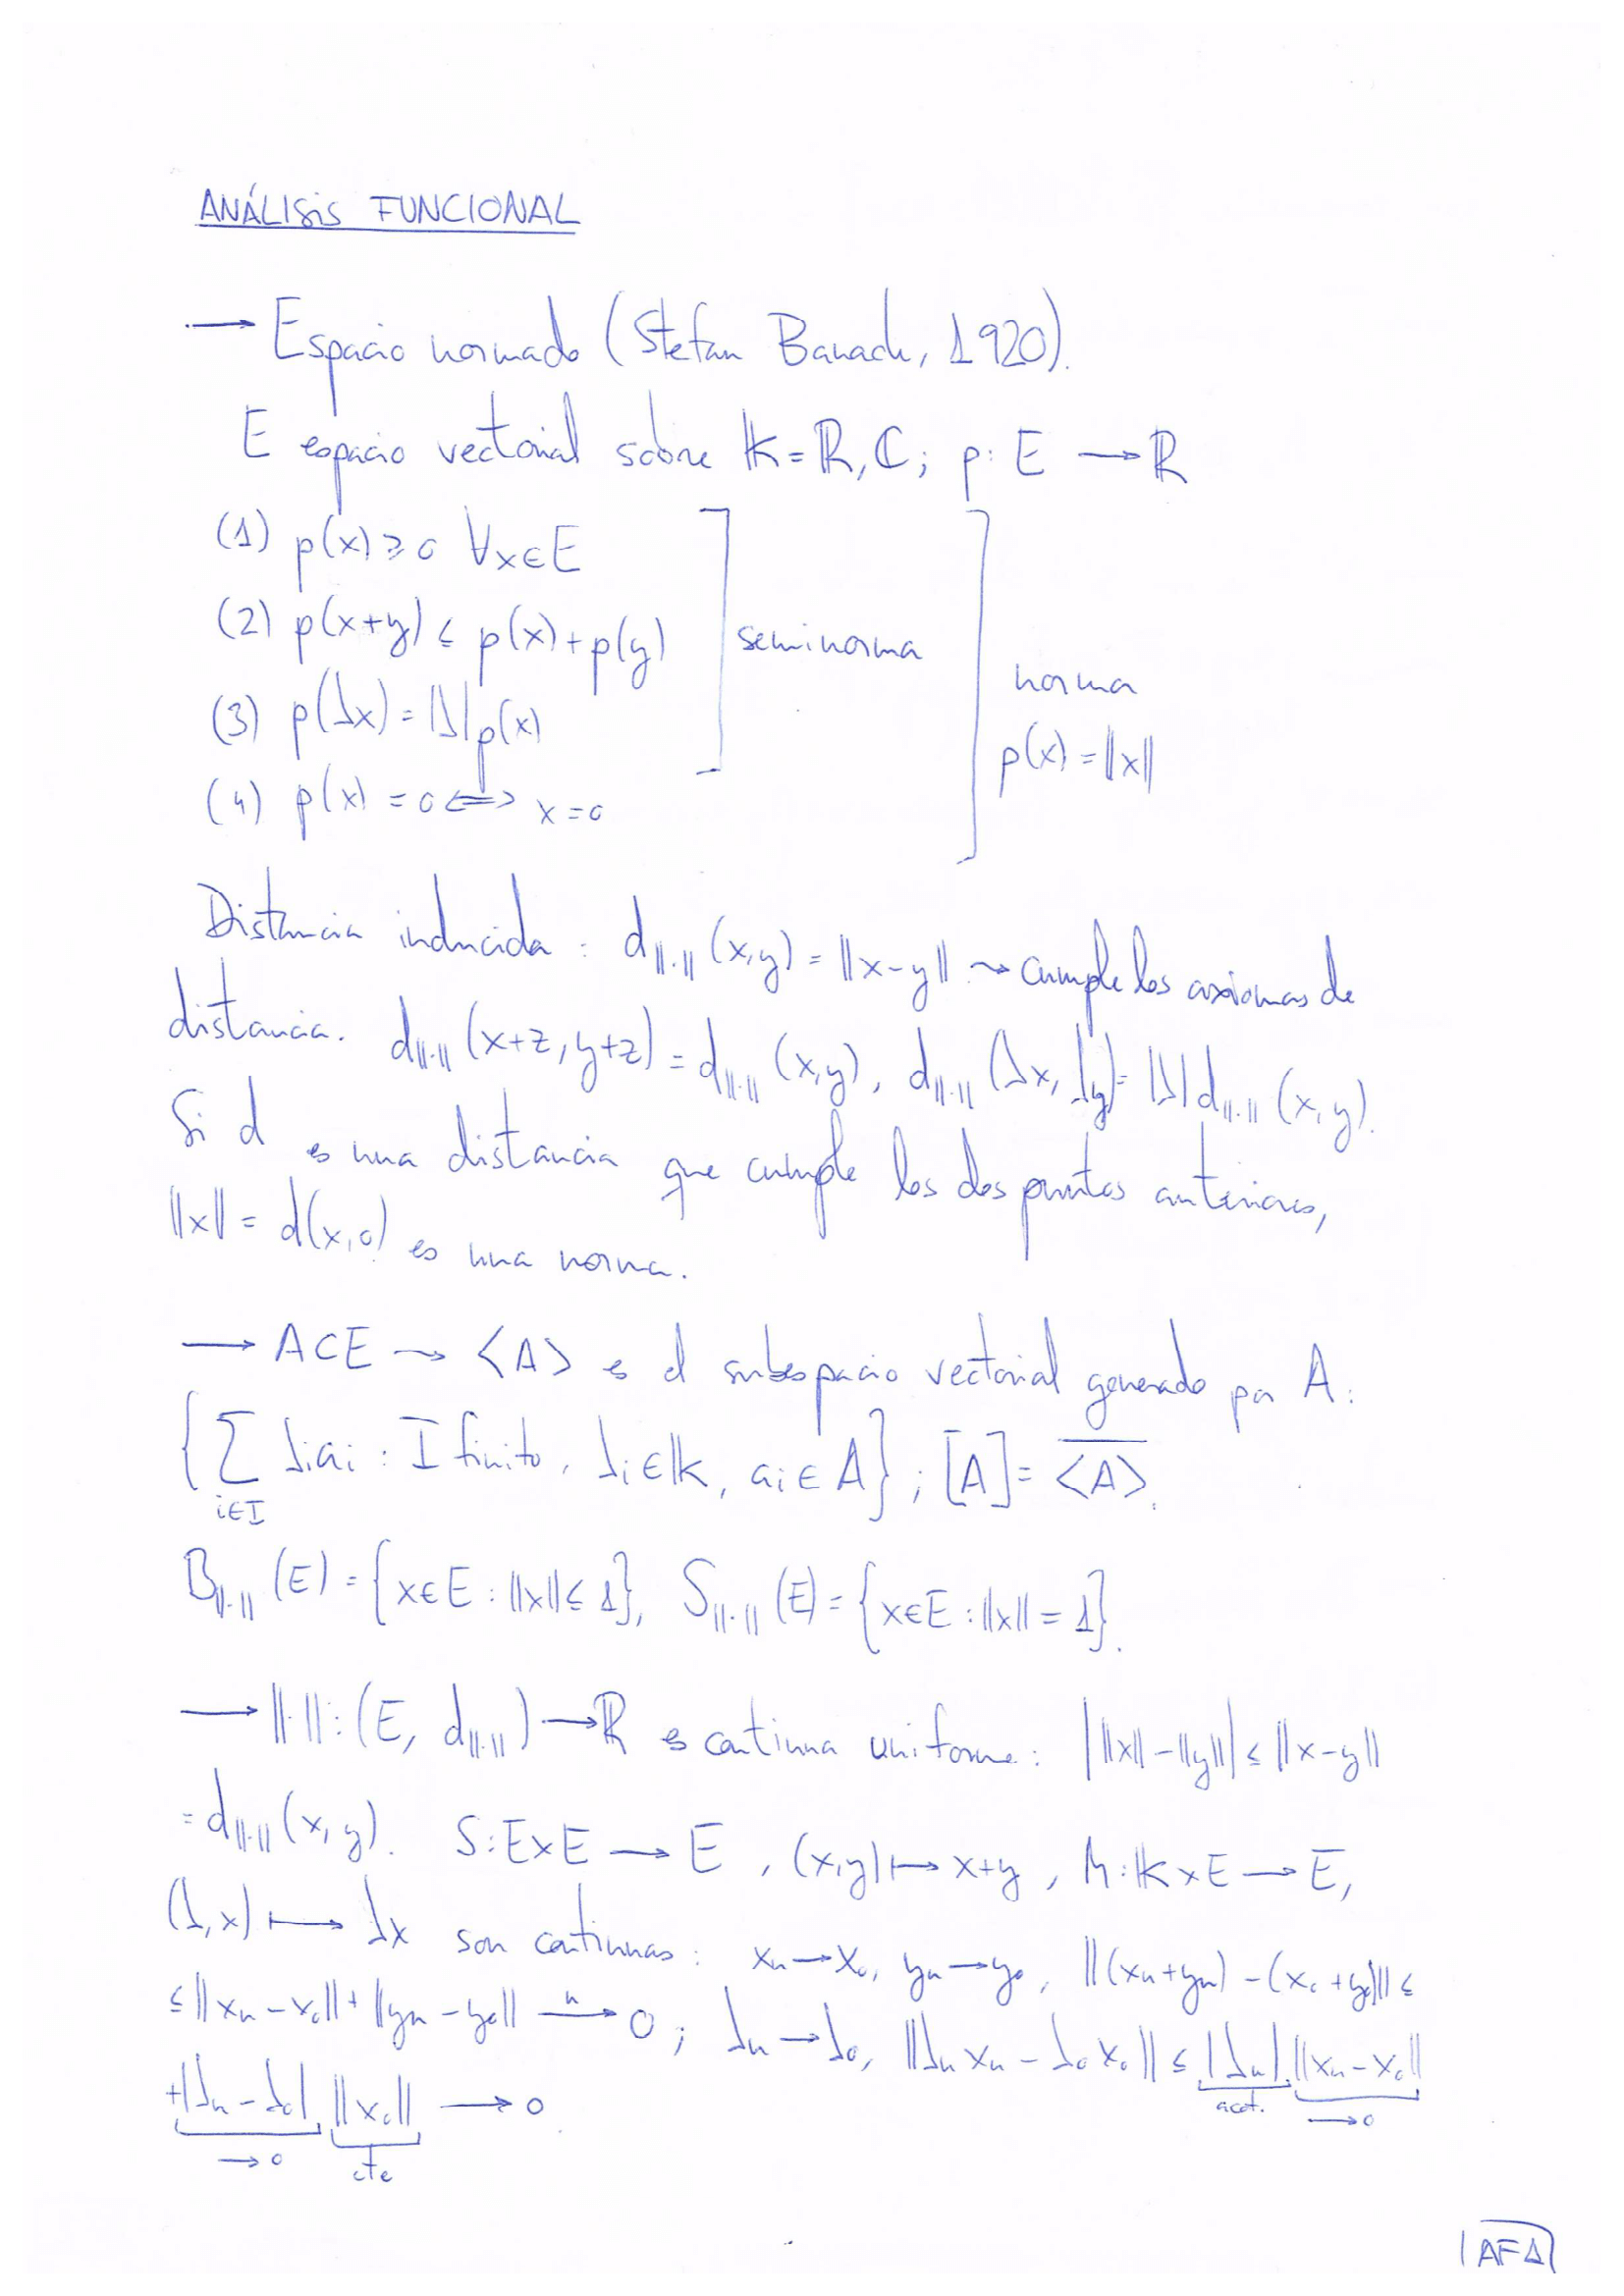 ANÁLISIS FUNCIONAL
→ Espacio normado (Stefan Banach, 1920).
E espacio vectorial sobre 𝕂=ℝ,ℂ; p: E → ℝ
(1) p(x) ≥ 0 ∀x∈E
(2) p(x+y) ≤ p(x)+p(y)
(3) p(λx) = |λ|p(x)
seminorma
(4) p(x) = 0 ⟺ x=0
norma
p(x) = ||x||
Distancia inducida : d||·||(x,y) = ||x-y|| ⇝ cumple los axiomas de
distancia. d||·||(x+z, y+z) = d||·||(x,y), d||·||(λx, λy) = |λ|d||·||(x,y).
Si d es una distancia que cumple los dos puntos anteriores,
||x|| = d(x,0) es una norma.
→ A⊂E ⇝ <A> es el subespacio vectorial generado por A:
{∑i∈I λiai : I finito, λi∈𝕂, ai∈A}; [A] = \overline{<A>}.
B||·||(E) = {x∈E : ||x|| ≤ 1}, S||·||(E) = {x∈E : ||x|| = 1}.
→ ||·||: (E, d||·||) → ℝ es continua uniforme: | ||x|| - ||y|| | ≤ ||x-y||
= d||·||(x,y). S: E×E → E, (x,y) ↦ x+y, M: 𝕂×E → E,
(λ,x) ↦ λx son continuas: xn → x0, yn → y0, ||(xn+yn) - (x0+y0)|| ≤
≤ ||xn - x0|| + ||yn - y0|| →n 0; λn → λ0, ||λnxn - λ0x0|| ≤ |λn| ||xn - x0||
acot. → 0
+|λn - λ0| ||x0|| → 0
→ 0 cte
AF1